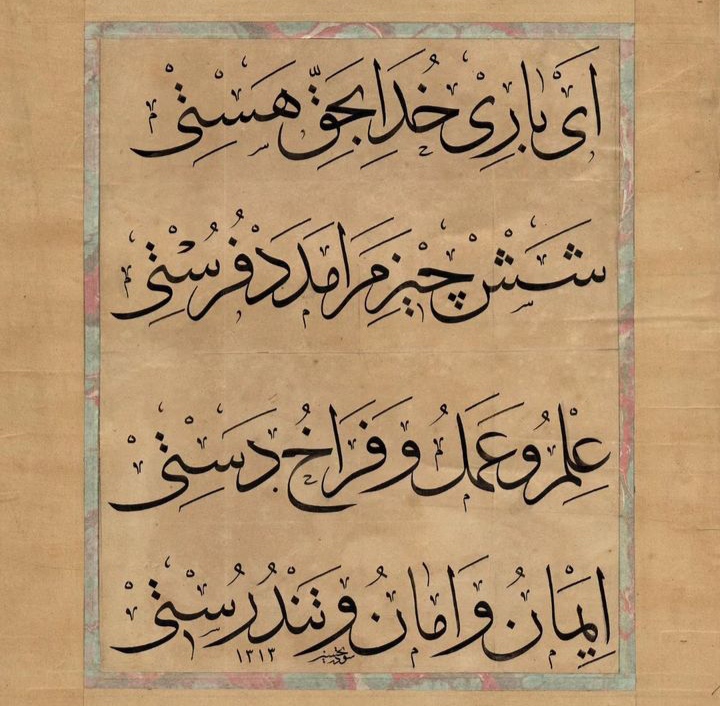 اَیْ بارِیْ خُدَا بِحَقِّ هَسْتِیْ
شَشْ چِیْزْ مَرَا مَدَدْ فُرُسْتِیْ
عِلْمُ وعَمَلُ وَفَرَاخُ دَسْتِیْ
اِیْمَانُ وَامَانُ وَتَنْدُرُسْتِیْ
١٣١٣